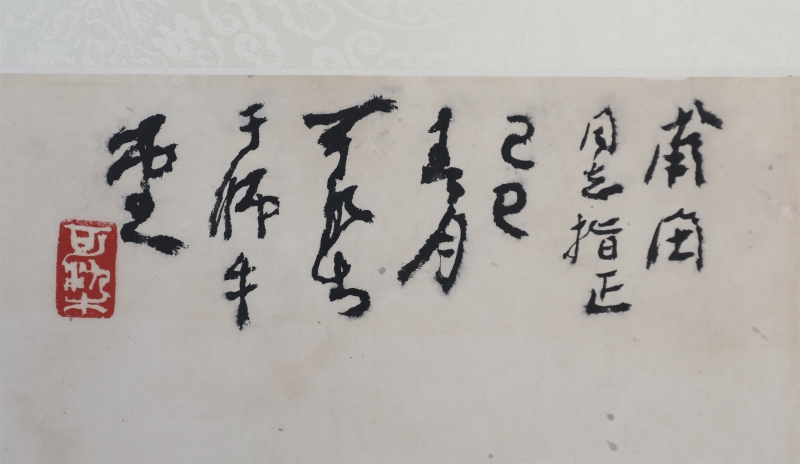 南
同志指正
己巳
春月
可染书
于师牛
堂
可染